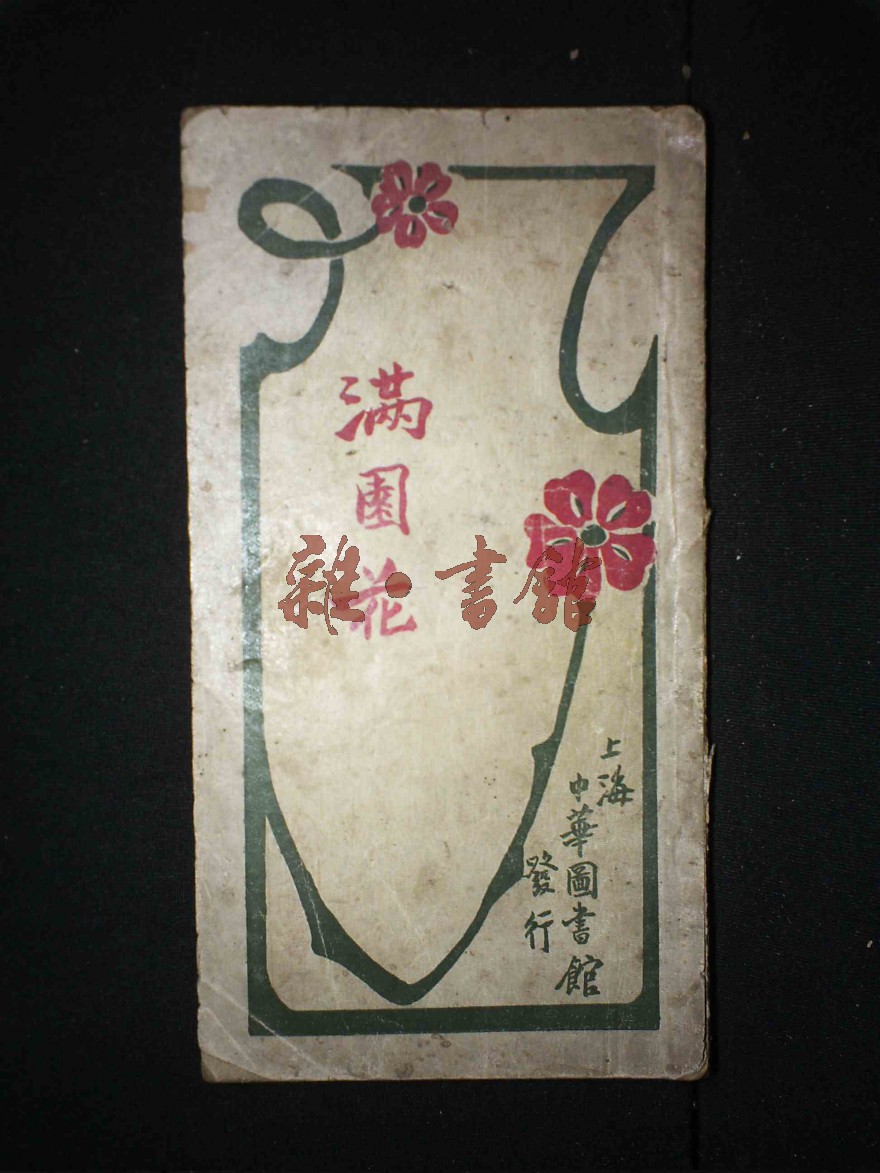 滿園花
上海
中華圖書館
發行
雜·書館